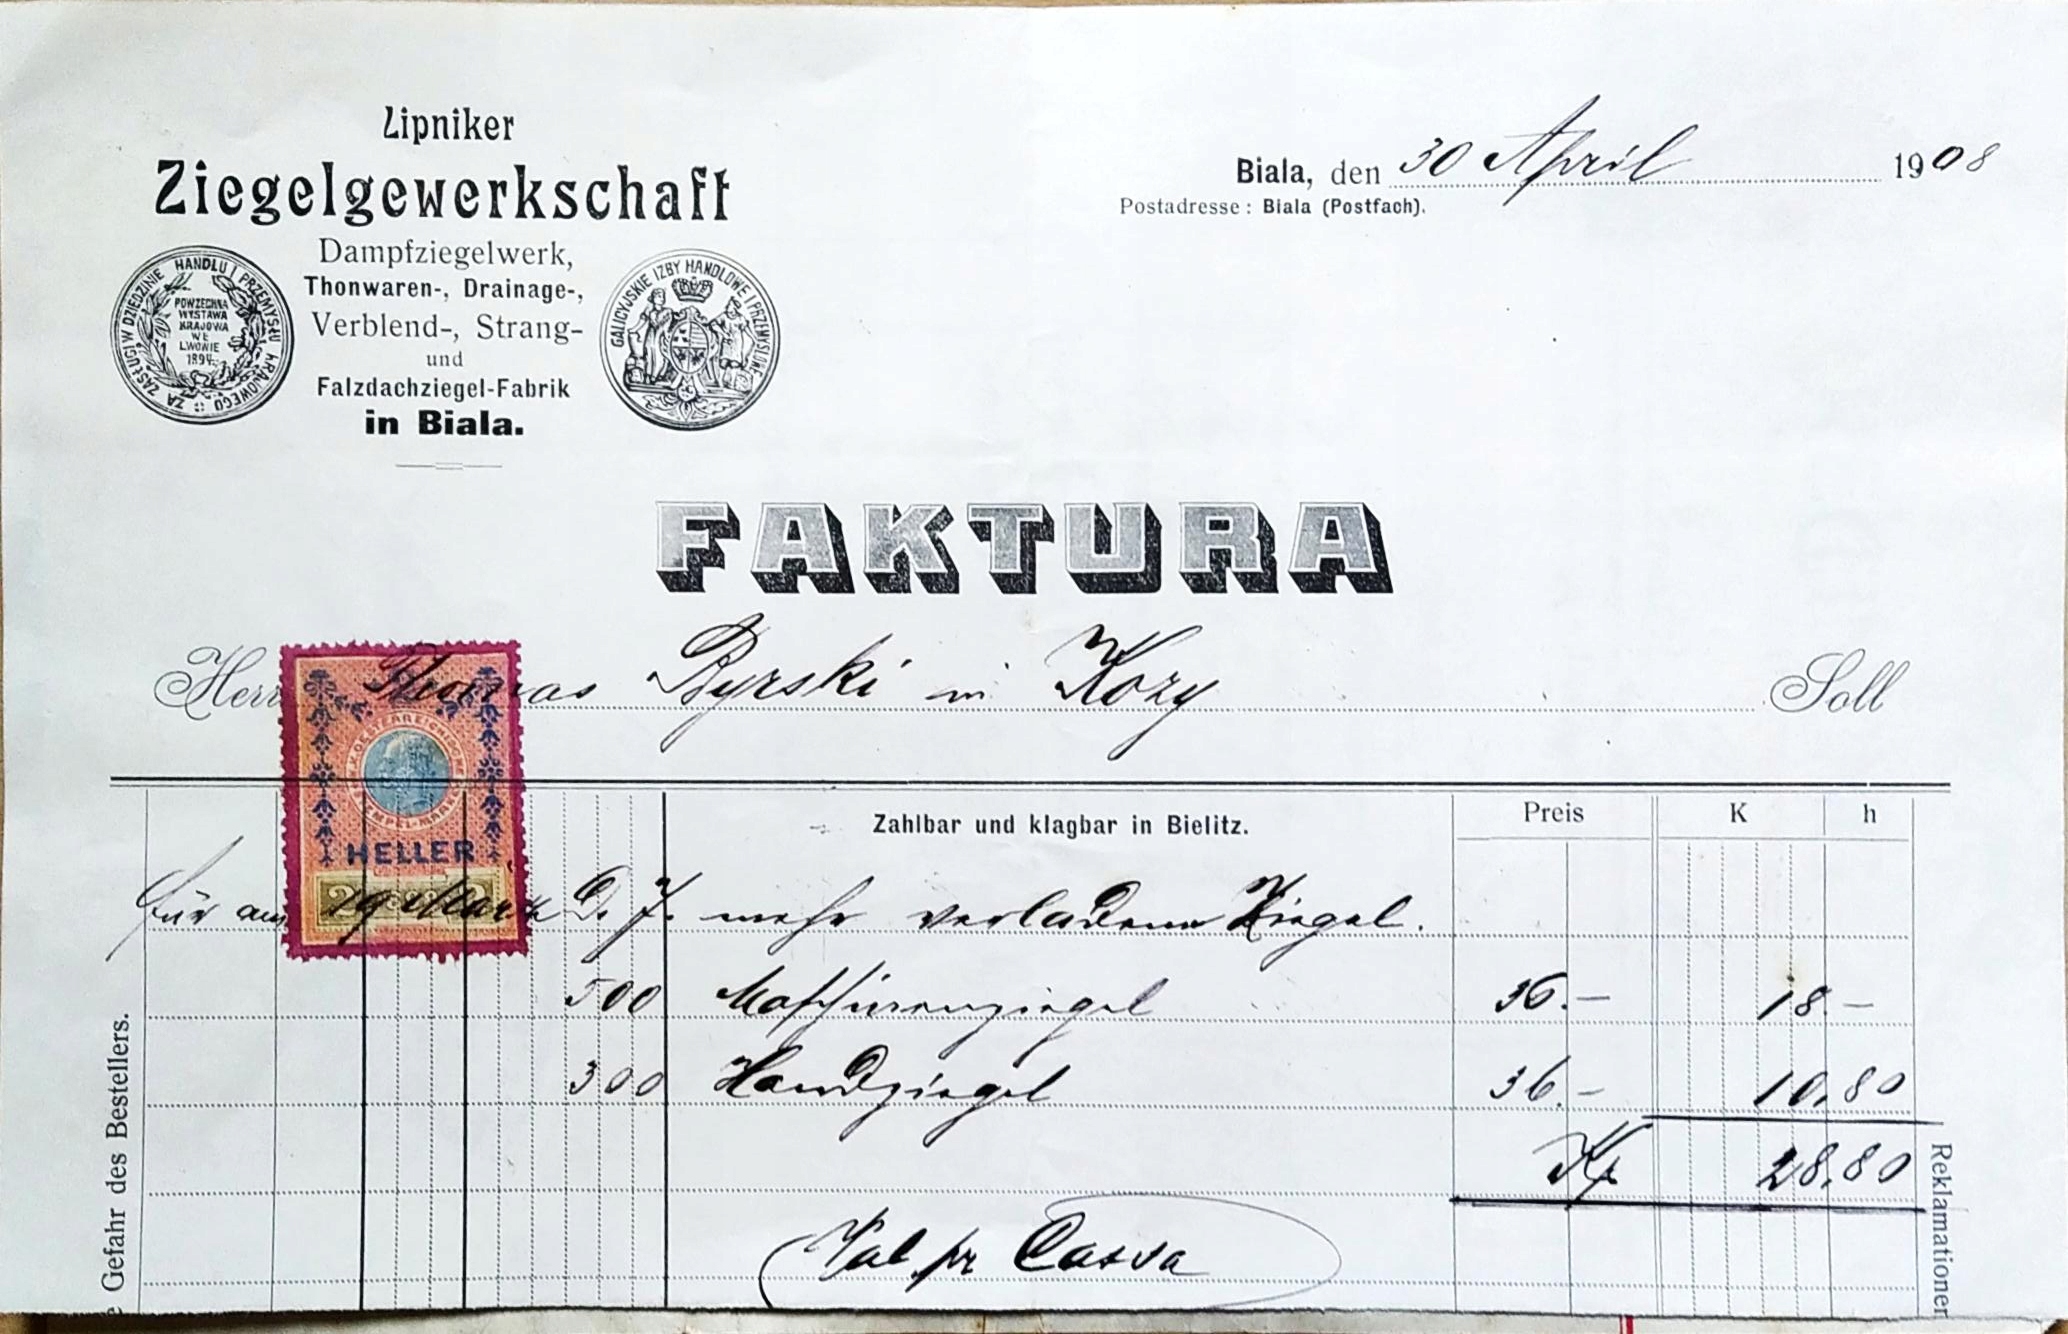 Lipniker
Ziegelgewerkschaft
Dampfziegelwerk,
Thonwaren-, Drainage-,
Verblend-, Strang-
und
Falzdachziegel-Fabrik
in Biala.
ZA ZASŁUGI W DZIEDZINIE HANDLU I PRZEMYSŁU KRAJOWEGO
POWZECHNA
WYSTAWA
KRAJOWA
WE
LWOWIE
1894
GALICYJSKIE IZBY HANDLOWE I PRZEMYSŁOWE
Biala, den 30 April 1908
Postadresse: Biala (Postfach).
FAKTURA
Herrn Thomas Byrski in Kozy Soll
K. K. OESTERREICHISCHE STEMPEL-MARKE
HELLER
2 2
Zahlbar und klagbar in Bielitz. Preis K h
Für am 19 März d. J. mehr verladene Ziegel.
500 Maschinenziegel 36.— 18.—
300 Handziegel 36.— 10.80
Kr 28.80
Sal. pr Cassa
Gefahr des Bestellers.
Reklamationen